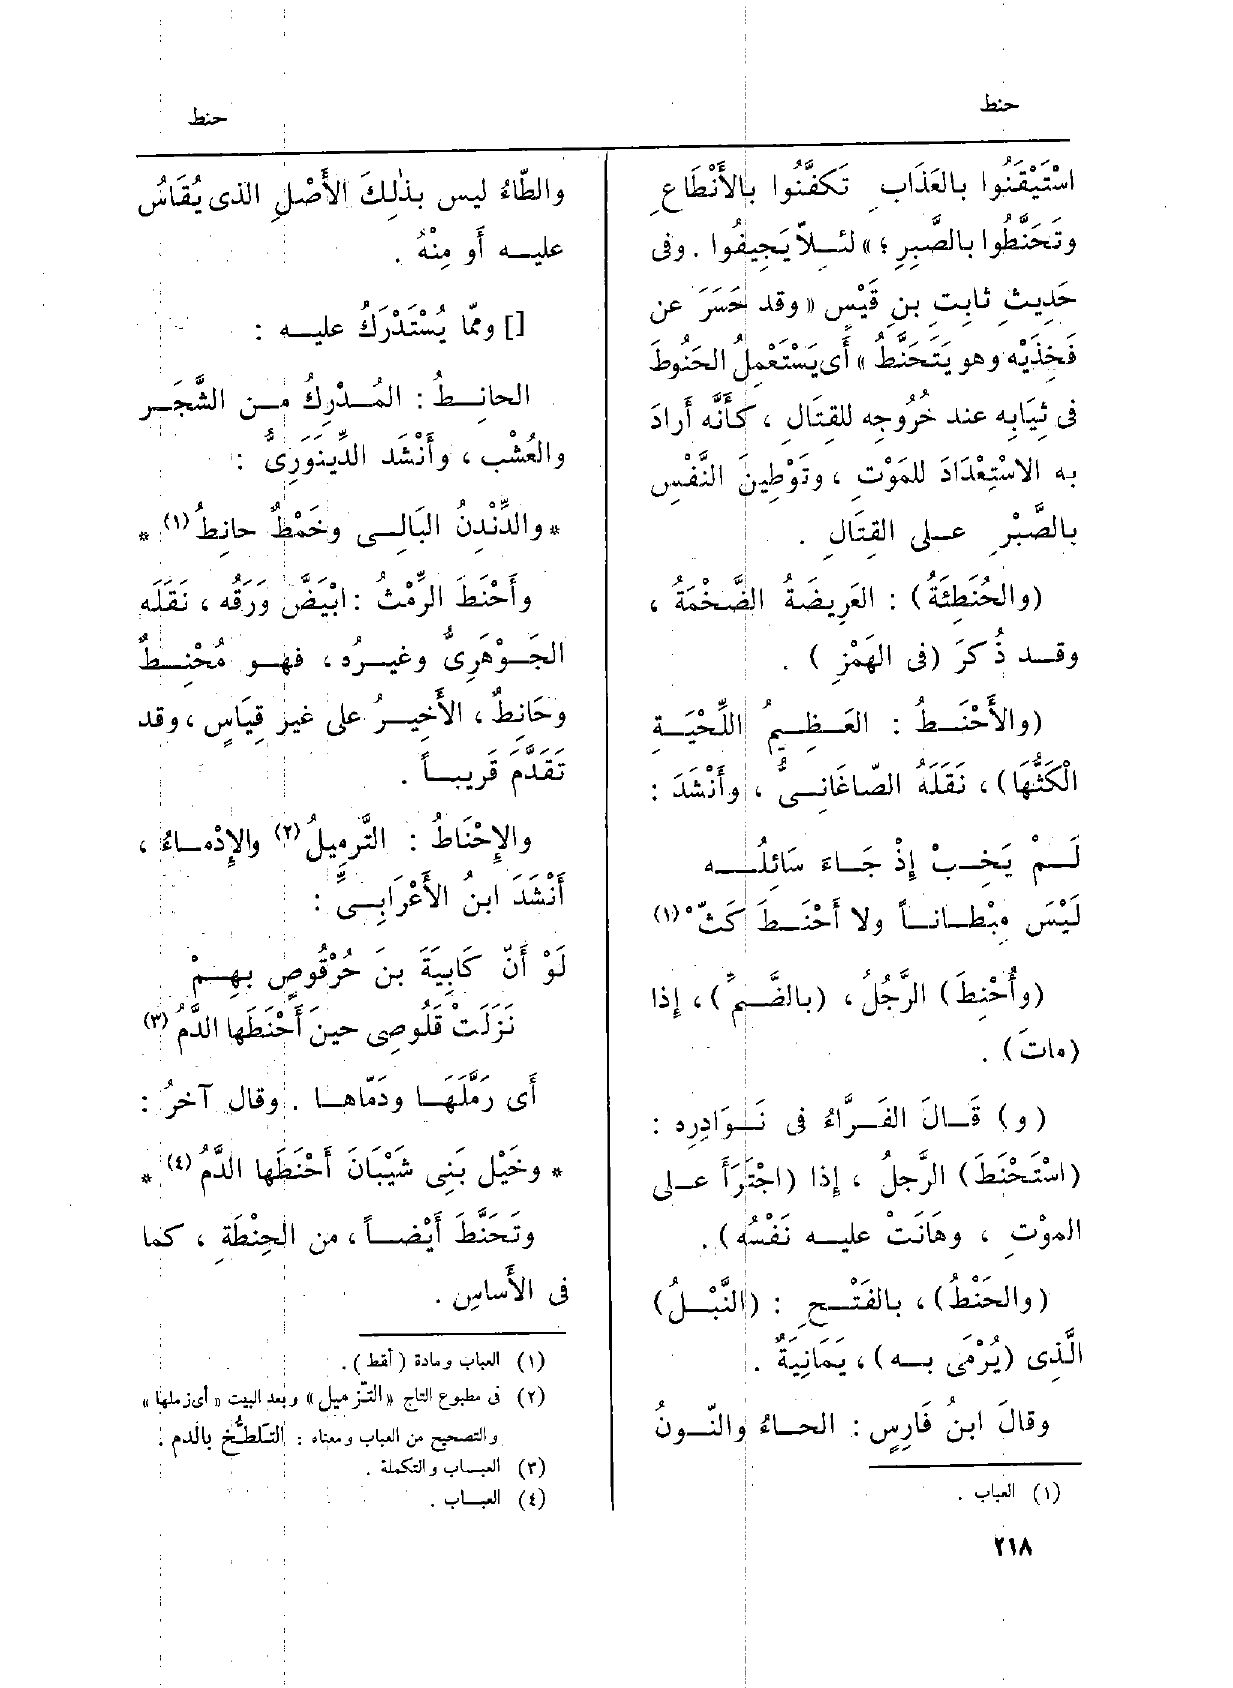 حنط
حنط
اسْتَيْقَنُوا بالعَذَابِ تَكَفَّنُوا بالأَنْطَاعِ
وتَحَنَّطُوا بالصَّبِرِ ؛ » لئـلاَّ يَجِيفُوا . وفى
حَدِيثِ ثابتِ بنِ قَيْسٍ « وقد حَسَرَ عن
فَخِذَيْه وهو يَتَحَنَّطُ » أَى يَسْتَعْمِلُ الحَنُوطَ
فى ثِيَابِه عند خُرُوجِه للقِتَالِ ، كأَنَّه أَرادَ
به الاسْتِعْدَادَ للمَوْتِ ، وتَوْطِينَ النَّفْسِ
بالصَّبْرِ عـلى القِتَالِ .
(والحُنَطِئَةُ) : العَرِيضَةُ الضَّخْمَةُ ،
وقـد ذُكرَ (فى الهَمْزِ ) .
(والأَحْنَـطُ : العَـظِـيمُ اللِّحْيَـةِ
الْكَثُّهَا) ، نَقَلَهُ الصّاغَانِـىُّ ، وأَنْشَدَ :
لَـمْ يَخِـبْ إِذْ جَـاءَ سَائِلُـه
لَيْسَ مِبْطـانـاً ولا أَحْنَـطَ كَثّ ْ (١)
(وأُحْنِطَ) الرَّجُلُ ، (بالضَّـمِّ) ، إِذا
(ماتَ) .
(و) قَـالَ الفَـرَّاءُ فى نَـوَادِرِه :
(اسْتَحْنَطَ) الرَّجلُ ، إذا (اجْتَرَأَ عـلى
الموْتِ ، وهَانَتْ عليـه نَفْسُه) .
(والحَنْطُ) ، بالفَتْـحِ : (النَّبْـلُ)
الَّذِى (يُرْمَى بـه) ، يَمَانِيَةٌ .
وقالَ ابنُ فَارِسٍ : الحـاءُ والنّـونُ
(١) العباب .
والطّاءُ ليس بذٰلِكَ الأَصْلِ الذى يُقَاسُ
عليـه أَو مِنْهُ .
[] وممّا يُسْتَدْرَكُ عليـه :
الحانِـطُ : المُـدْرِكُ مـن الشَّجَـرِ
والعُشْبِ ، وأَنْشَد الدِّينَوَرِىُّ :
* والدِّنْدِنُ البَالِـى وخَمْطٌ حانِطُ (١) *
وأَحْنَطَ الرِّمْثُ : ابْيَضَّ وَرَقُه ، نَقَلَه
الجَـوْهَرِىُّ وغيـرُه ، فهـو مُحْنِـطٌ
وحَانِطٌ ، الأَخِيـرُ على غيرِ قِيَاسٍ ، وقد
تَقَدَّمَ قَرِيبـاً .
والإِحْنَاطُ : التَّرمِيلُ (٢) والإِدْمـاءُ ،
أَنْشَدَ ابنُ الأَعْرَابِـىِّ :
لَوْ أَنّ كَابِيَةَ بنَ حُرْقُوصٍ بِهِـمْ
نَزَلَتْ قَلُوصِى حينَ أَحْنَطَها الدَّمُ (٣)
أَى رَمَّلَهَـا ودَمّاهـا . وقال آخرُ :
* وخَيْل بَنِى شَيْبَانَ أَحْنَطَها الدَّمُ (٤) *
وتَحَنَّطَ أَيْضـاً ، من الحِنْطَةِ ، كما
فى الأَساسِ .
(١) العباب ومادة (أقط) .
(٢) فى مطبوع التاج «التزميل» وبعد البيت « أى زملها »
والتصحيح من العباب ومعناه : التلطّخ بالدم .
(٣) العبـاب والتكملة .
(٤) العبـاب .
٢١٨